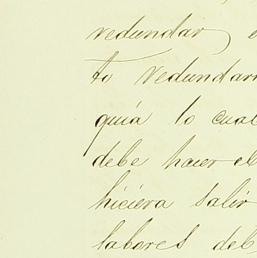 redundar e
to redundar
quia lo cual
debe hacer el
hiciera salir
labores del